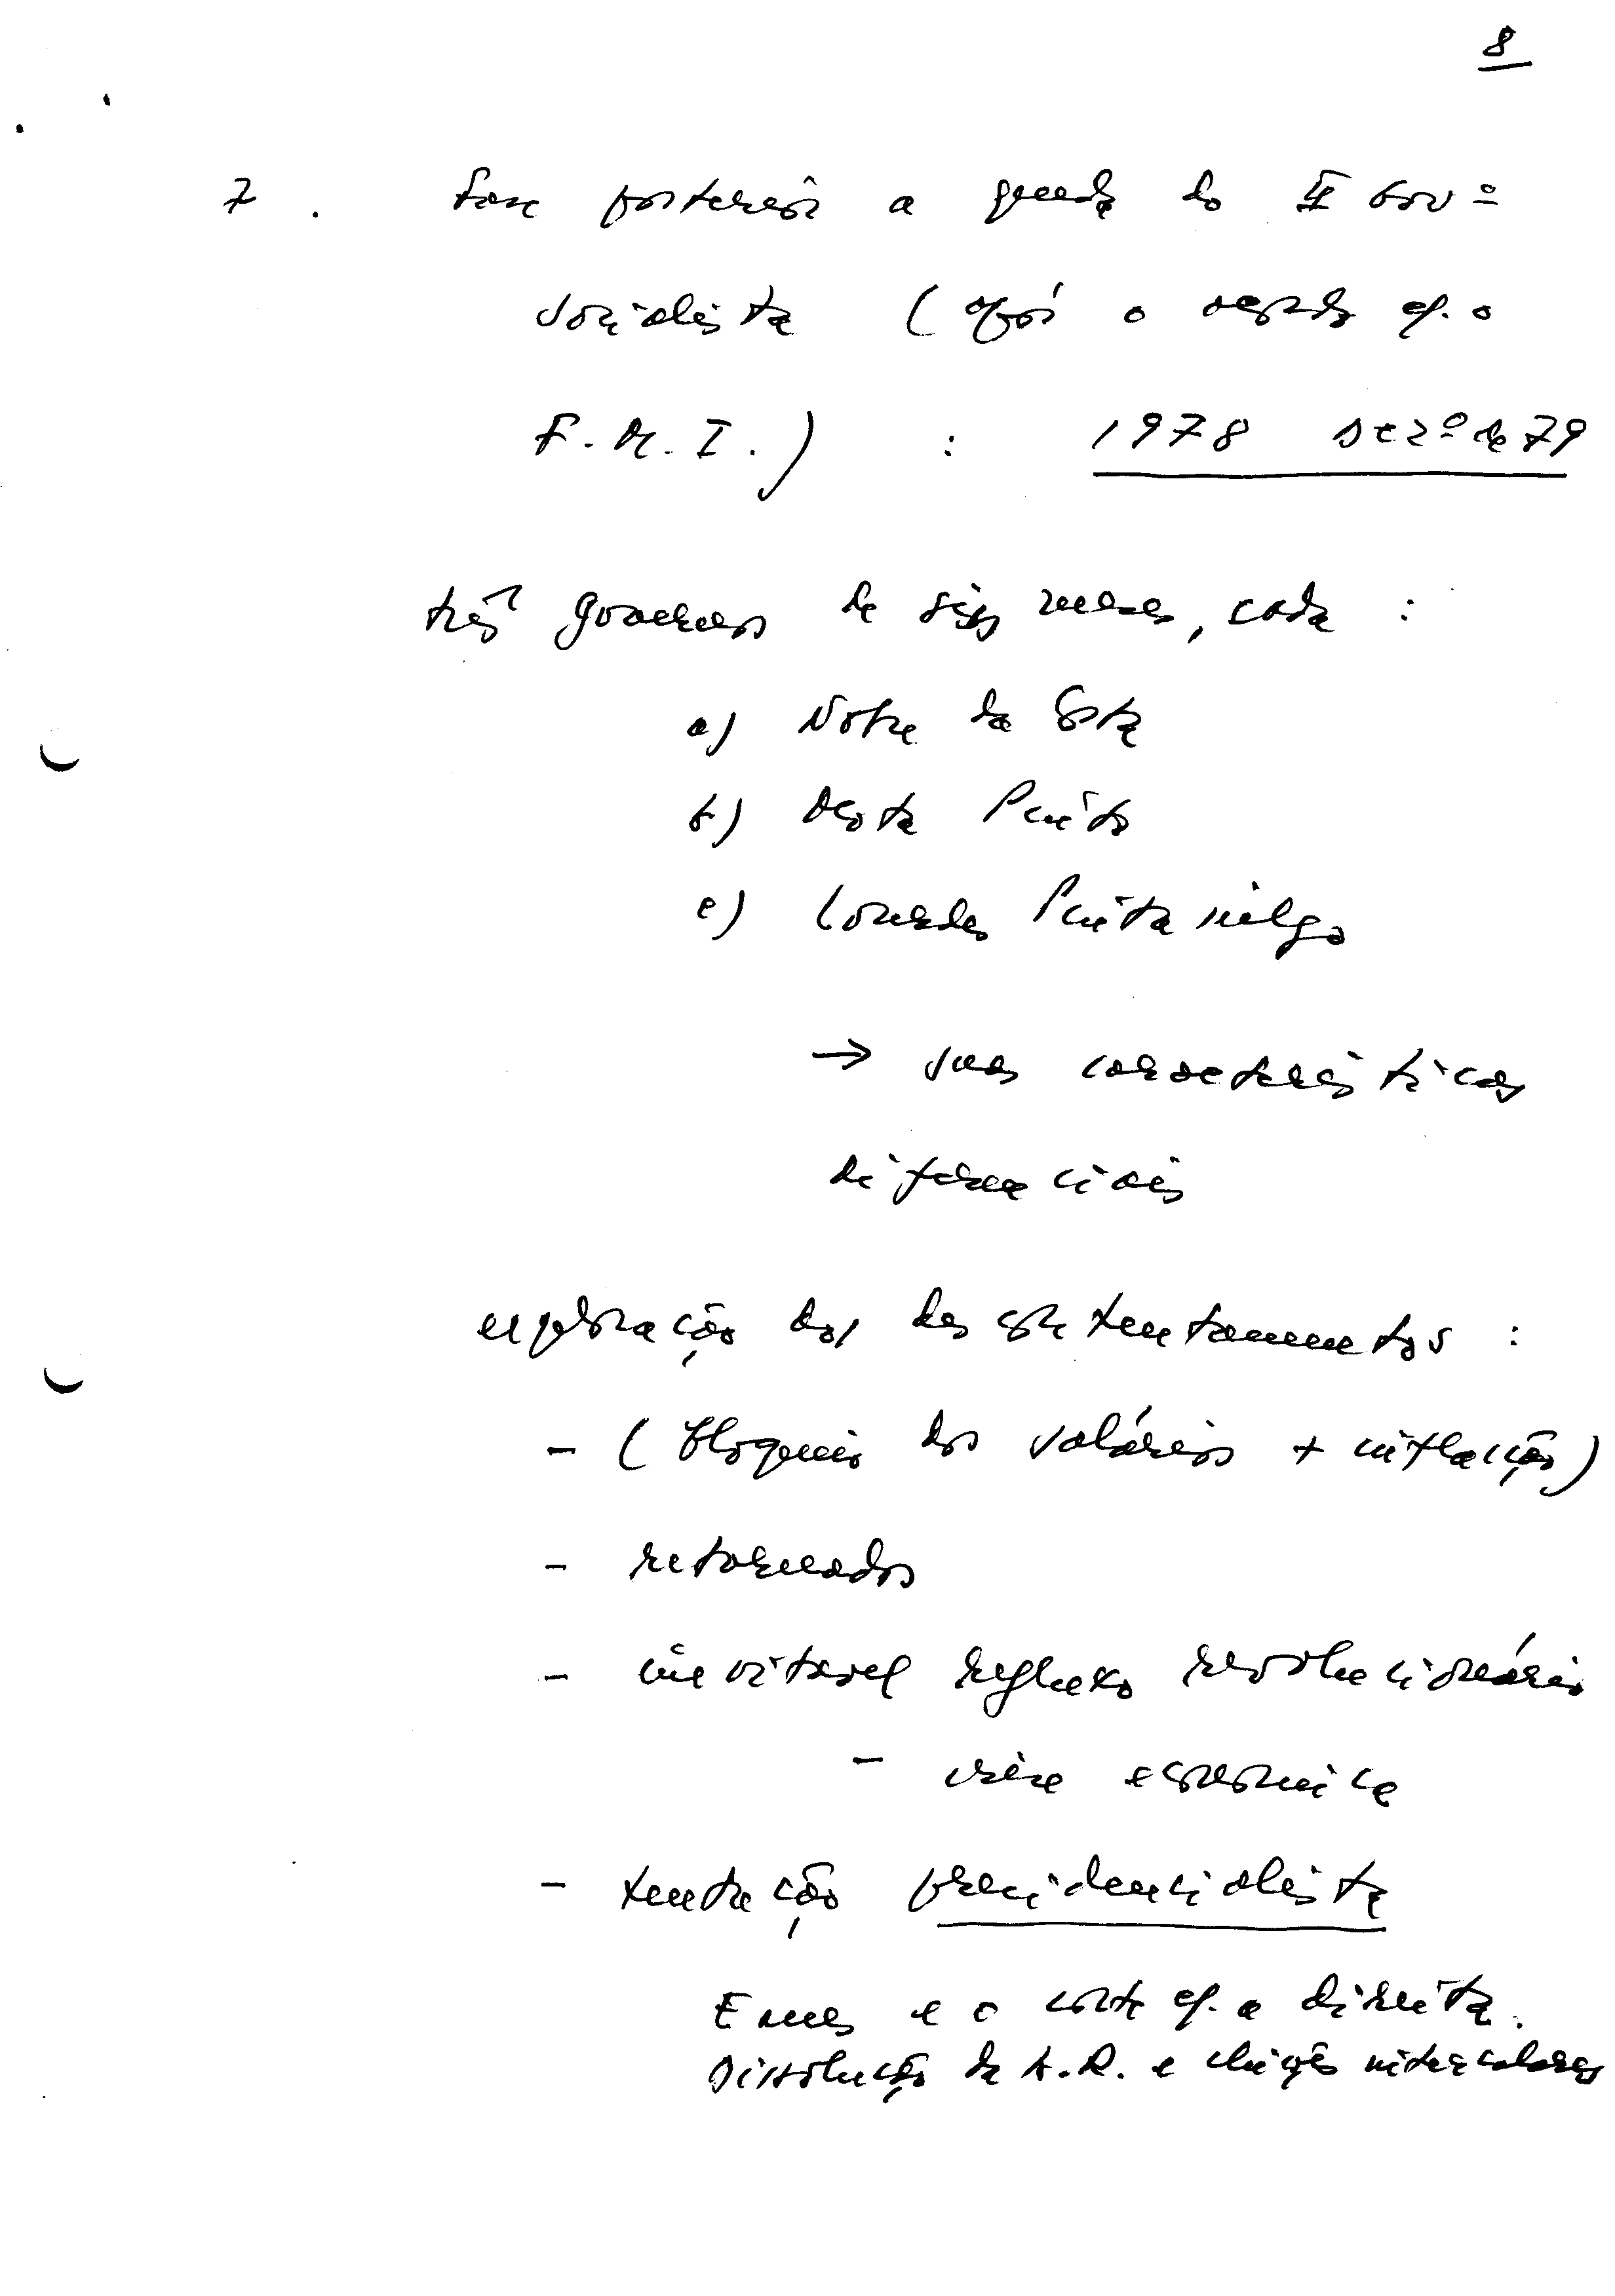 8
7. Fase posterior a queda do II Govº
socialista (após o acordo c/. o
F.M.I.) : 1978 Dezº de 79
três governos de seis meses, cada :
a) Nobre da Costa
b) Mota Pinto
c) Lourdes Pintasilgo
→ suas características
diferenciais
exploração dos descontentamentos :
- (bloqueio dos salários + inflação)
- retornados
- inevitavel refluxo revolucionário
- crise económica
- tentação presidencialista
Eanes e o corte c/. a direita.
Dissolução da A.R. e eleições intercalares